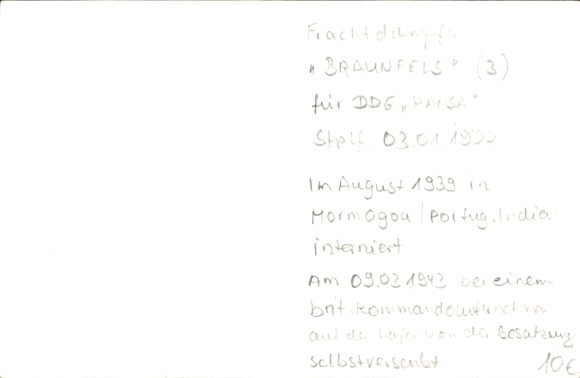 Frachtdampfer
"BRAUNFELS" (3)
für DDG "HANSA"
Stplf 03.01.1927
Im August 1939 in
Mormogoa/Portug. Indien
interniert
Am 09.03.1943 bei einem
brit.
auf den Hafen von der Besatzung
selbstversenkt
10€